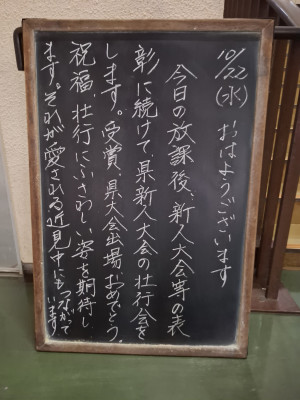 10/22(水) おはようございます
今日の放課後、新人大会等の表
彰に続けて県新人大会の壮行会を
します。受賞、県大会出場おめでとう。
祝福、壮行にふさわしい姿を期待し
ます。それが愛される近見中にもつながって
います。